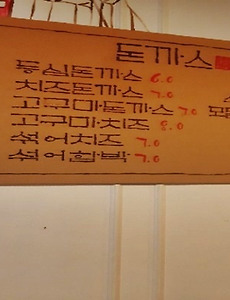 돈까스
등심돈까스 6.0
치즈돈까스 7.0
고구마돈까스 7.0
고구마치즈 8.0
섞어치즈 7.0
섞어함박 7.0